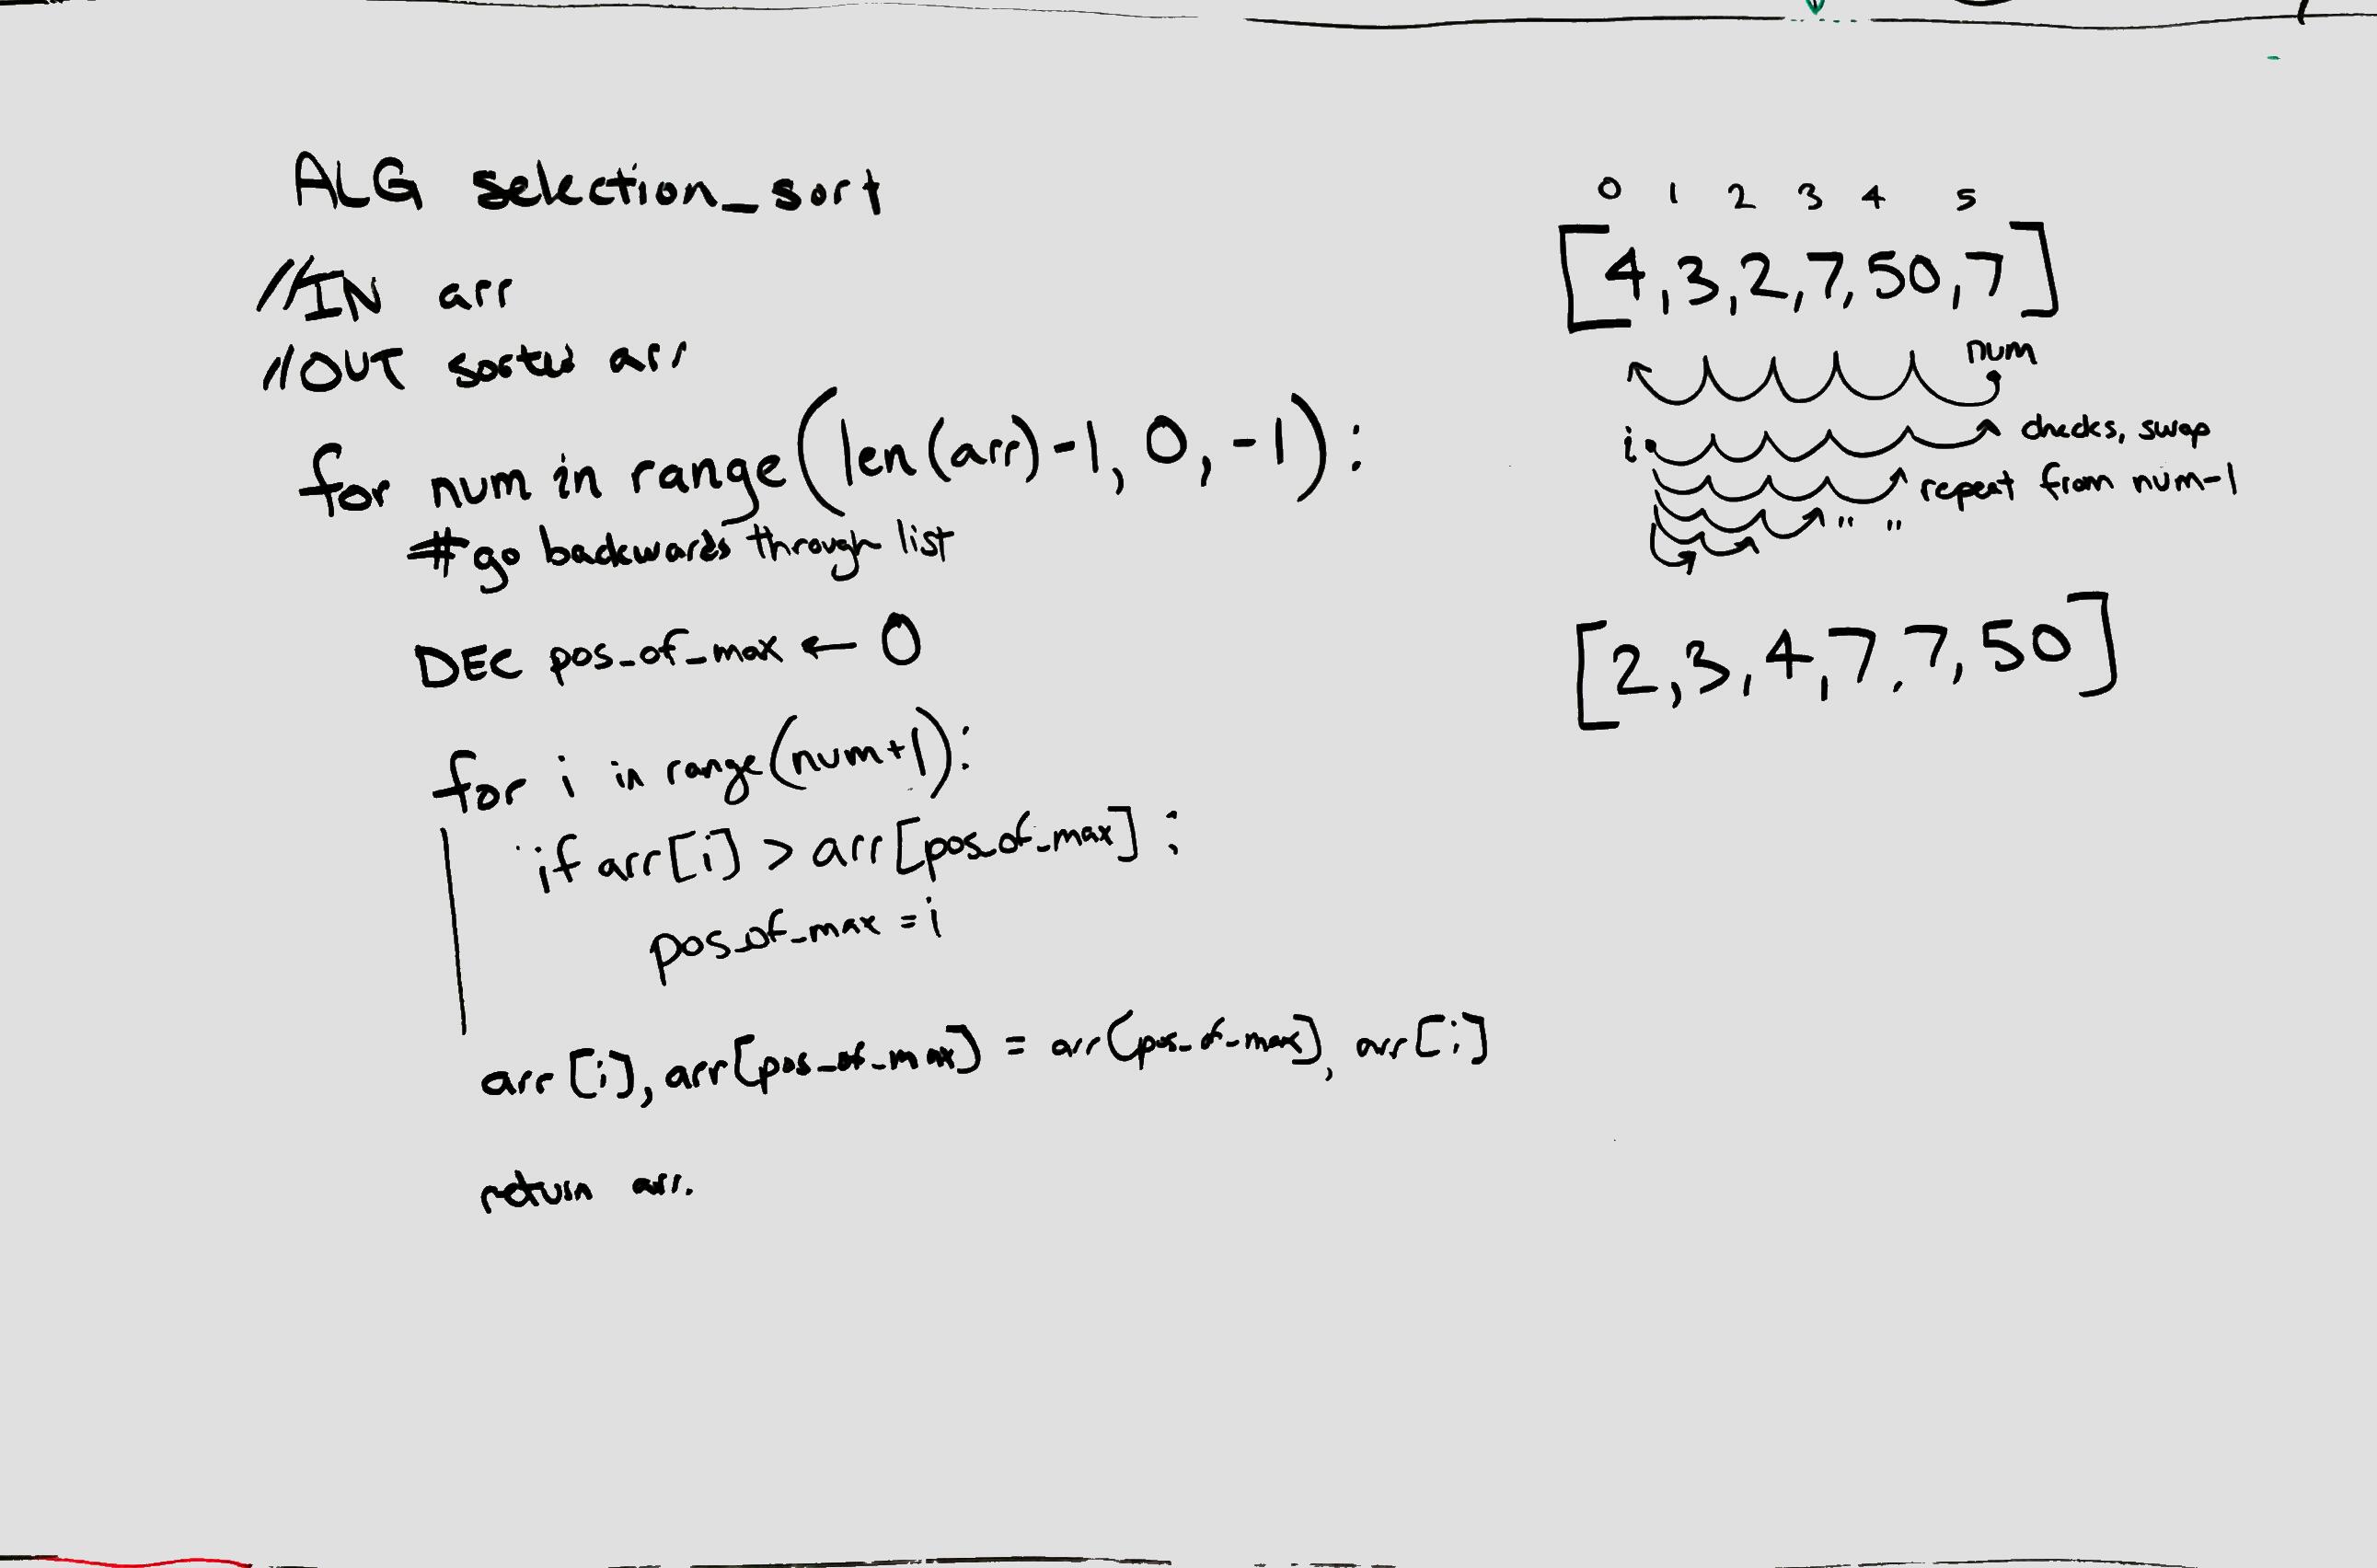 ALG selection_sort
//IN arr
//OUT sorted arr
for num in range(len(arr)-1, 0, -1):
#go backwards through list
DEC pos_of_max ← 0
for i in range(num+1):
if arr[i] > arr[pos_of_max]:
pos_of_max = i
arr[i], arr[pos_of_max] = arr[pos_of_max], arr[i]
return arr.
0 1 2 3 4 5
[4,3,2,7,50,7]
num
i checks, swap
repeat from num-1
" "
[2,3,4,7,7,50]